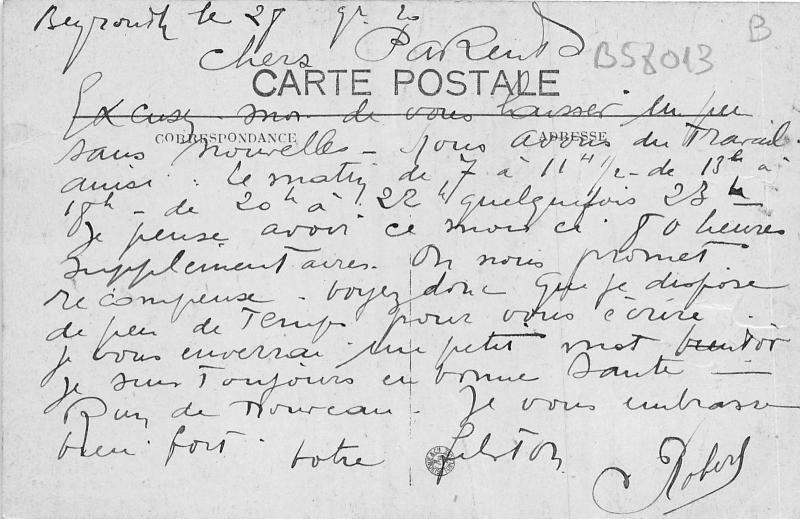 Beyrouth le 28 9bre 20
B
B58013
Chers Parents
CARTE POSTALE
Excusez moi de vous laisser un peu
CORRESPONDANCE ADRESSE
sans nouvelles - Nous avons du Travail
ainsi : Le matin de 7 à 11h 1/2 - de 13h à
18h - de 20h à 22h quelquefois 23h
Je pense avoir ce mois ci 80 heures
supplémentaires. On nous promet
récompense. Voyez donc que je dispose
de peu de Temps pour vous écrire.
Je vous enverrai un petit mot bientôt
Je suis Toujours en bonne Santé -
Rien de nouveau. Je vous embrasse
bien fort. Votre fiston
Robert